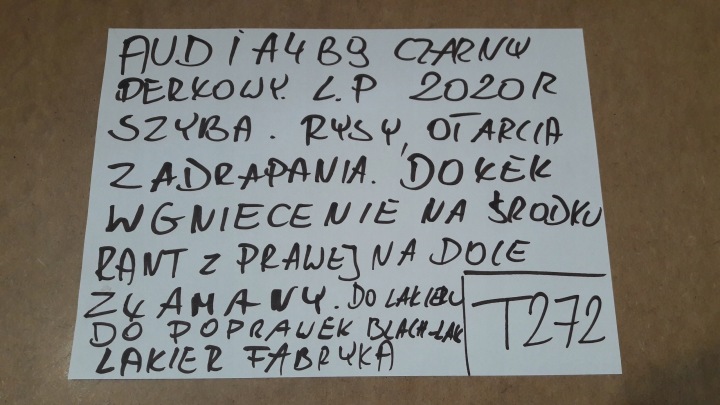 AUDI A4 B9 CZARNY
DERKOWY. L.P 2020R
SZYBA. RYSY, OTARCIA
ZADRAPANIA. DOŁEK
WGNIECENIE NA ŚRODKU
RANT z PRAWEJ NA DOLE
ZŁAMANY. DO LAKIERU
DO POPRAWEK BLACH-LAK
LAKIER FABRYKA
T272